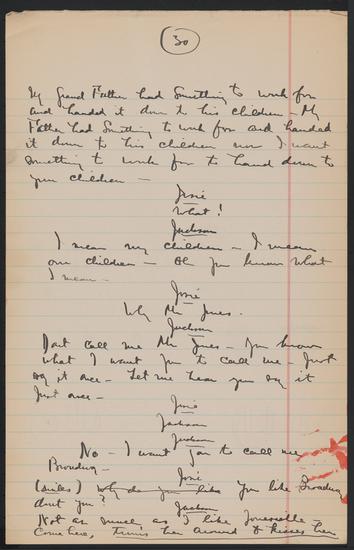 30
My Grand Father had Something to work for
and handed it down to his children - My
Father had Something to work for and handed
it down to his children now I want
something to work for to hand down to
your children -
Josie
What!
Jackson
I mean my children - I mean
our children - Oh you know what
I mean -
Josie
Why Mr Jones.
Jackson
Dont call me Mr Jones - You know
what I want you to call me - Just
say it once - Let me hear you say it
Just once -
Josie
Jackson
Jackson
No - I want you to call me
Broadway -
Josie
(smiles) Why do you like You like Broadway
dont you?
Jackson
Not as much as I like Jonesville
Come here, turns her around & kisses her